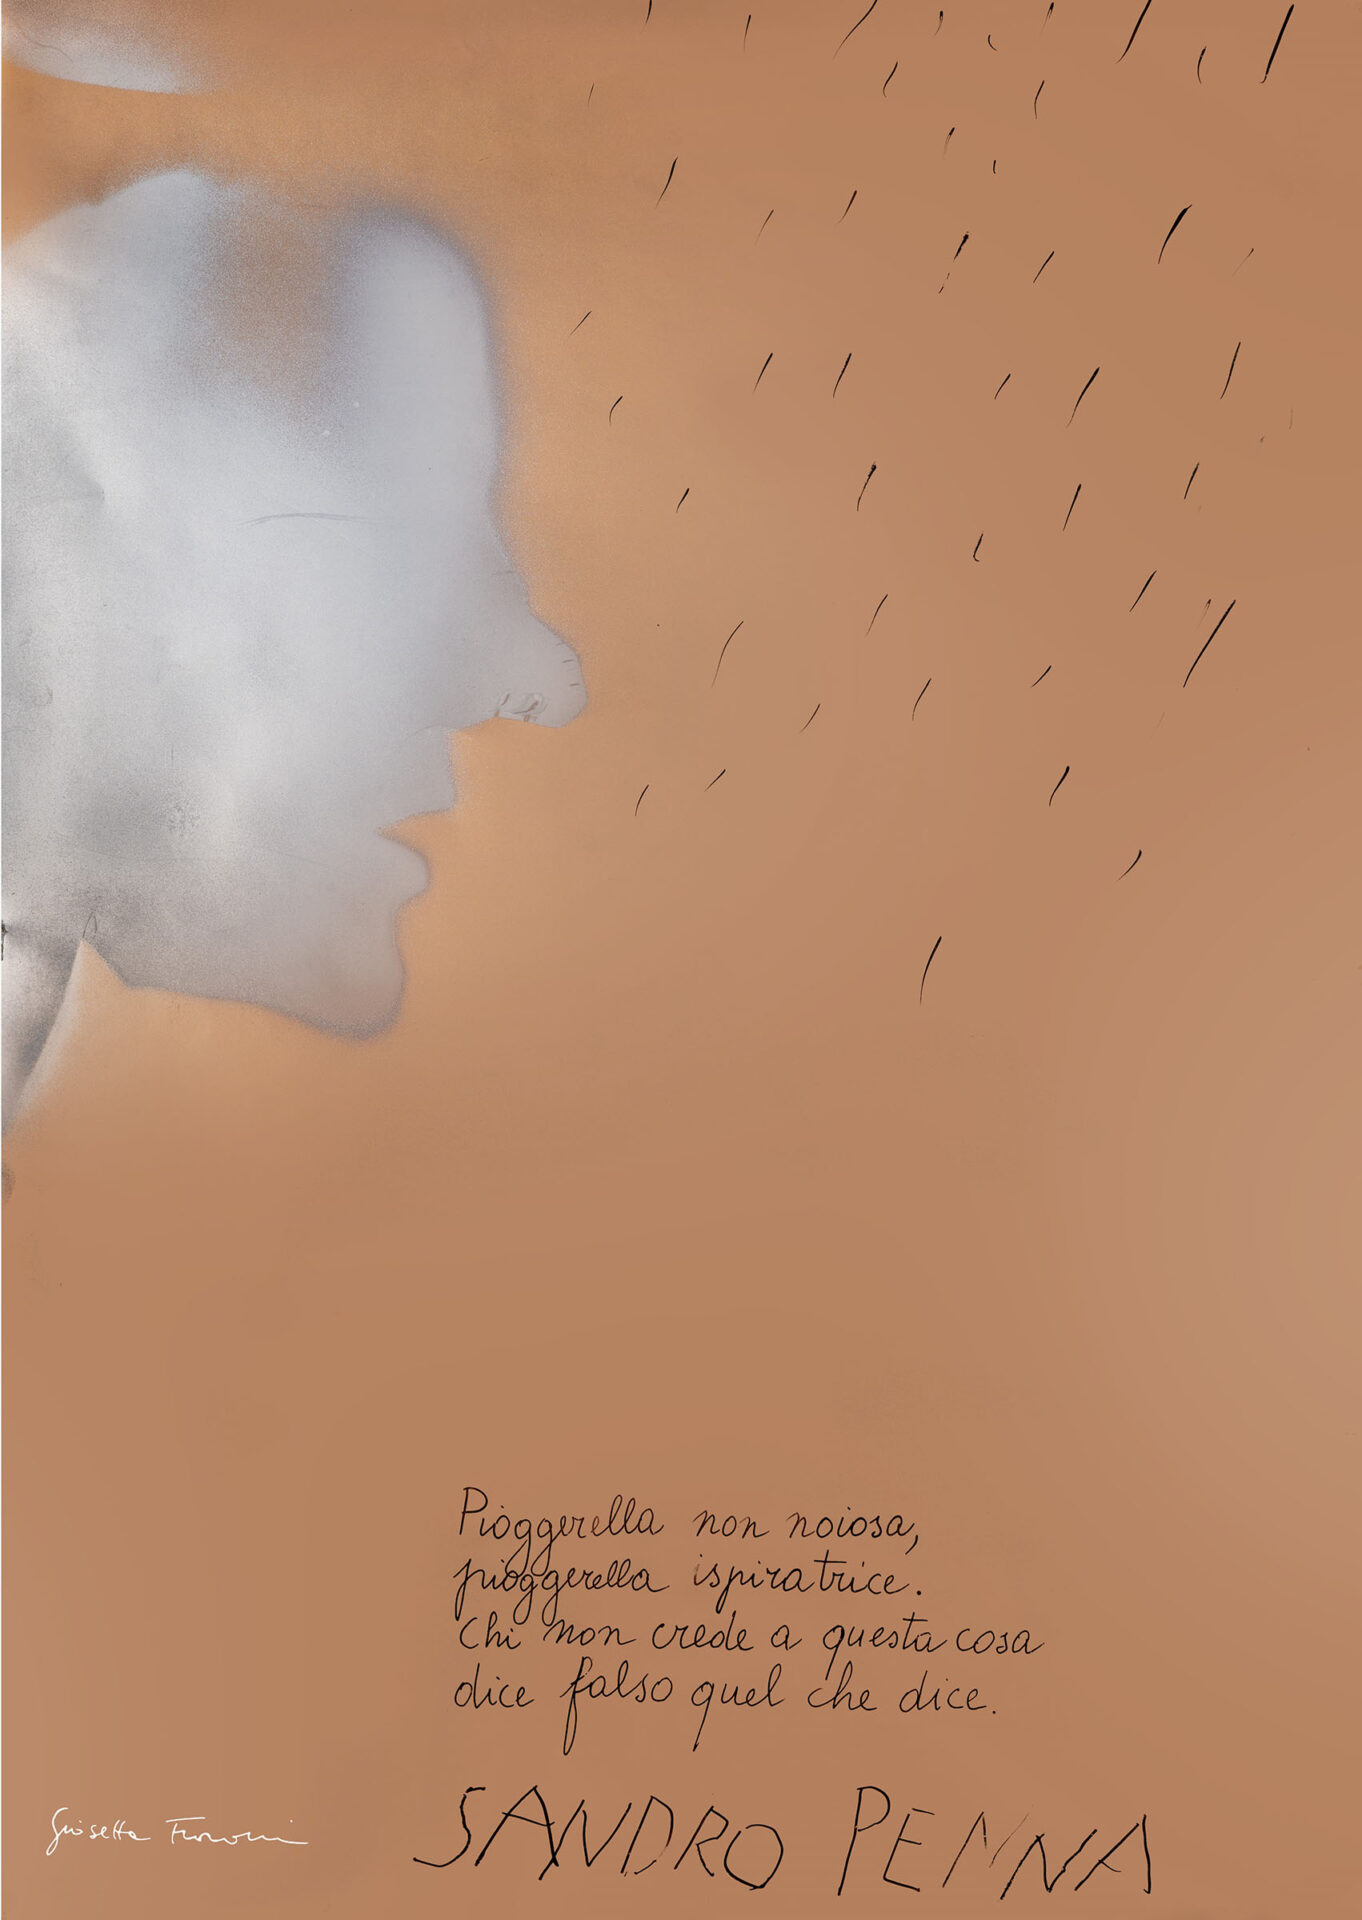 Pioggerella non noiosa,
pioggerella ispiratrice.
Chi non crede a questa cosa
dice falso quel che dice.
SANDRO PENNA
Giosetta Fioroni